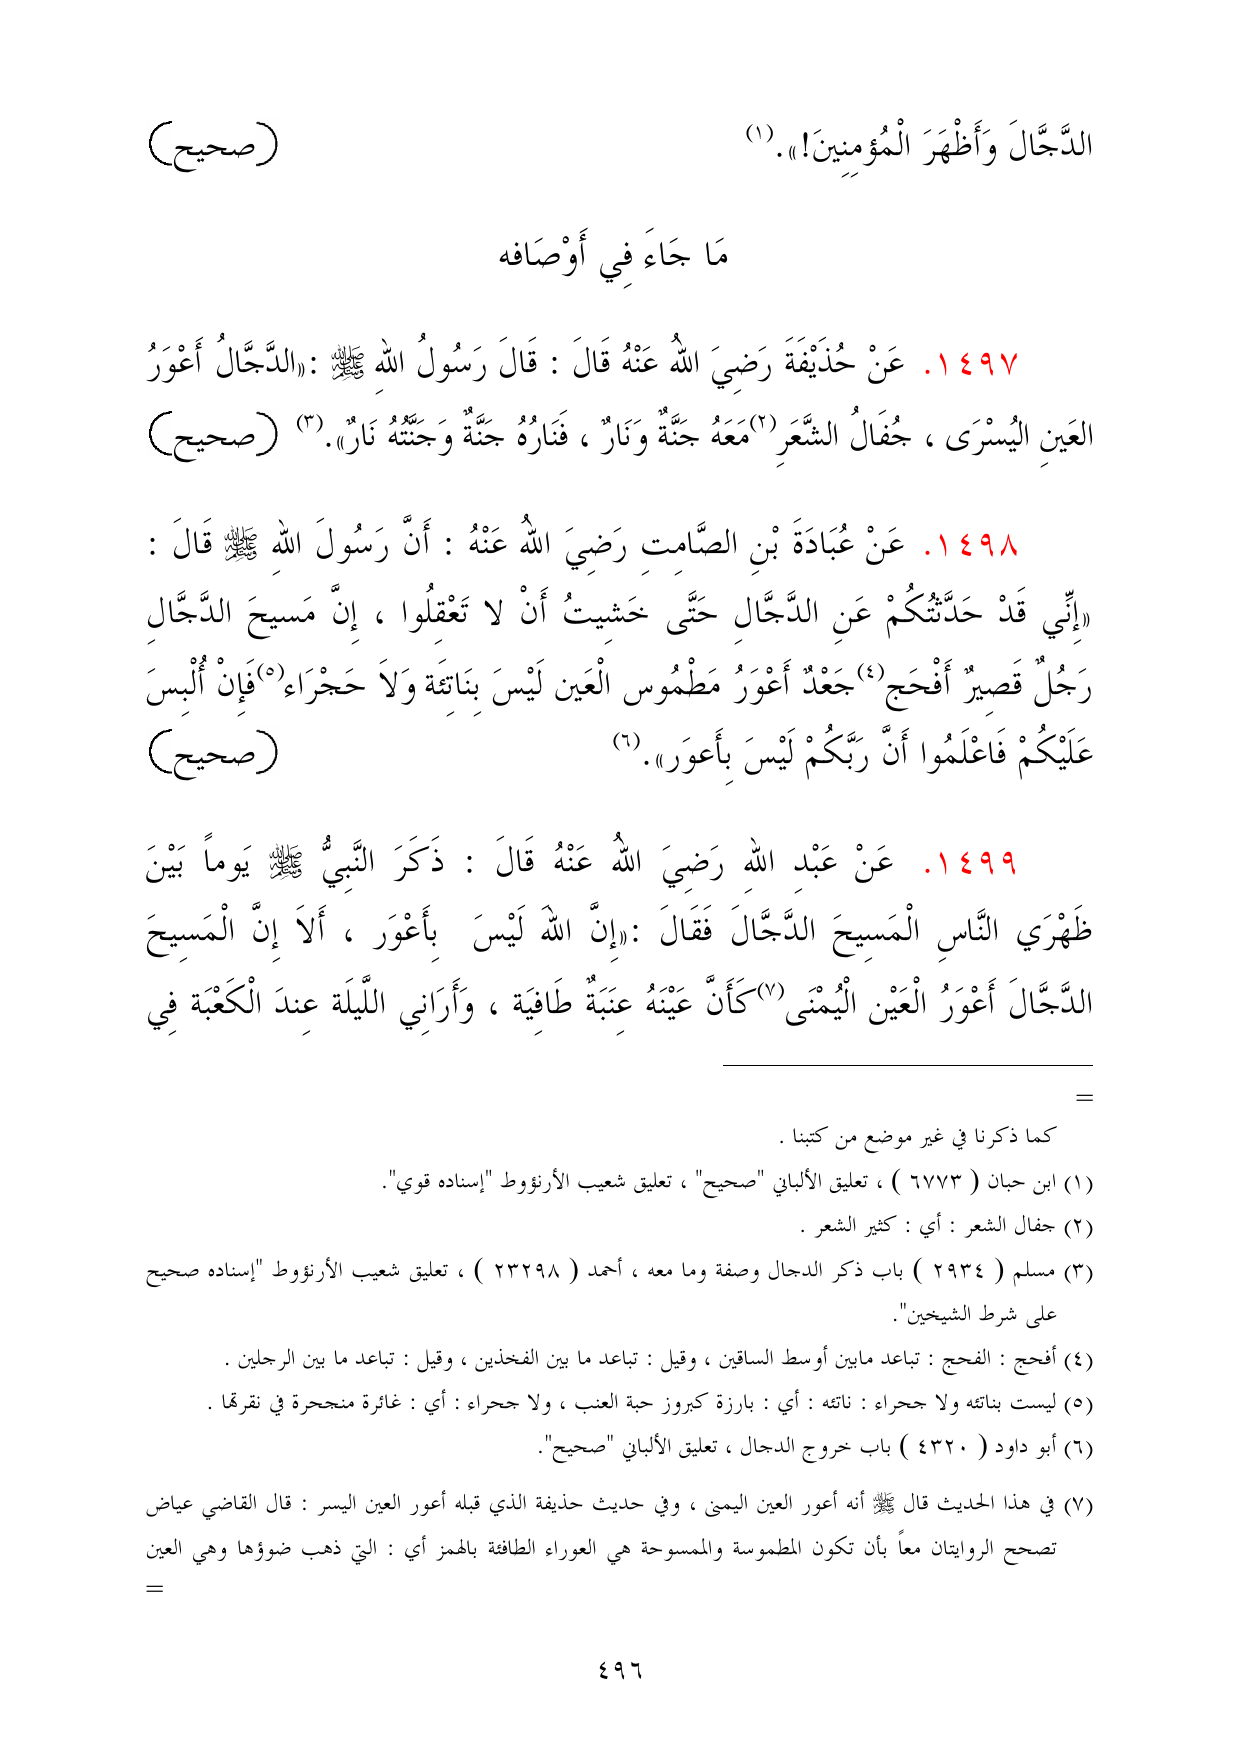 الدَّجَّالَ وَأَظْهَرَ الْمُؤمِنِينَ!». (١) (صحيح)
مَا جَاءَ فِي أَوْصَافه
١٤٩٧. عَنْ حُذَيْفَةَ رَضِيَ اللهُ عَنْهُ قَالَ : قَالَ رَسُولُ اللهِ ﷺ :«الدَّجَّالُ أَعْوَرُ
العَينِ اليُسْرَى ، جُفَالُ الشَّعَرِ(٢)مَعَهُ جَنَّةٌ وَنَارٌ ، فَنَارُهُ جَنَّةٌ وَجَنَّتُهُ نَارٌ». (٣) (صحيح)
١٤٩٨. عَنْ عُبَادَةَ بْنِ الصَّامِتِ رَضِيَ اللهُ عَنْهُ : أَنَّ رَسُولَ اللهِ ﷺ قَالَ :
«إِنِّي قَدْ حَدَّثْتُكُمْ عَنِ الدَّجَّالِ حَتَّى خَشِيتُ أَنْ لا تَعْقِلُوا ، إِنَّ مَسيحَ الدَّجَّالِ
رَجُلٌ قَصِيرٌ أَفْحَج(٤)جَعْدٌ أَعْوَرُ مَطْمُوس الْعَين لَيْسَ بِنَاتِئَة وَلاَ حَجْرَاء(٥)فَإِنْ أُلْبِسَ
عَلَيْكُمْ فَاعْلَمُوا أَنَّ رَبَّكُمْ لَيْسَ بِأَعوَر». (٦) (صحيح)
١٤٩٩. عَنْ عَبْدِ اللهِ رَضِيَ اللهُ عَنْهُ قَالَ : ذَكَرَ النَّبِيُّ ﷺ يَوماً بَيْنَ
ظَهْرَي النَّاسِ الْمَسِيحَ الدَّجَّالَ فَقَالَ :«إِنَّ اللهَ لَيْسَ بِأَعْوَر ، أَلاَ إِنَّ الْمَسِيحَ
الدَّجَّالَ أَعْوَرُ الْعَيْن الْيُمْنَى(٧)كَأَنَّ عَيْنَهُ عِنَبَةٌ طَافِيَة ، وَأَرَانِي اللَّيلَة عِندَ الْكَعْبَة فِي
=
كما ذكرنا في غير موضع من كتبنا .
(١) ابن حبان ( ٦٧٧٣ ) ، تعليق الألباني "صحيح" ، تعليق شعيب الأرنؤوط "إسناده قوي".
(٢) جفال الشعر : أي : كثير الشعر .
(٣) مسلم ( ٢٩٣٤ ) باب ذكر الدجال وصفة وما معه ، أحمد ( ٢٣٢٩٨ ) ، تعليق شعيب الأرنؤوط "إسناده صحيح
على شرط الشيخين".
(٤) أفحج : الفحج : تباعد مابين أوسط الساقين ، وقيل : تباعد ما بين الفخذين ، وقيل : تباعد ما بين الرجلين .
(٥) ليست بناتئه ولا جحراء : ناتئه : أي : بارزة كبروز حبة العنب ، ولا جحراء : أي : غائرة منجحرة في نقرتها .
(٦) أبو داود ( ٤٣٢٠ ) باب خروج الدجال ، تعليق الألباني "صحيح".
(٧) في هذا الحديث قال ﷺ أنه أعور العين اليمنى ، وفي حديث حذيفة الذي قبله أعور العين اليسر : قال القاضي عياض
تصحح الروايتان معاً بأن تكون المطموسة والممسوحة هي العوراء الطافئة بالهمز أي : التي ذهب ضوؤها وهي العين
=
٤٩٦